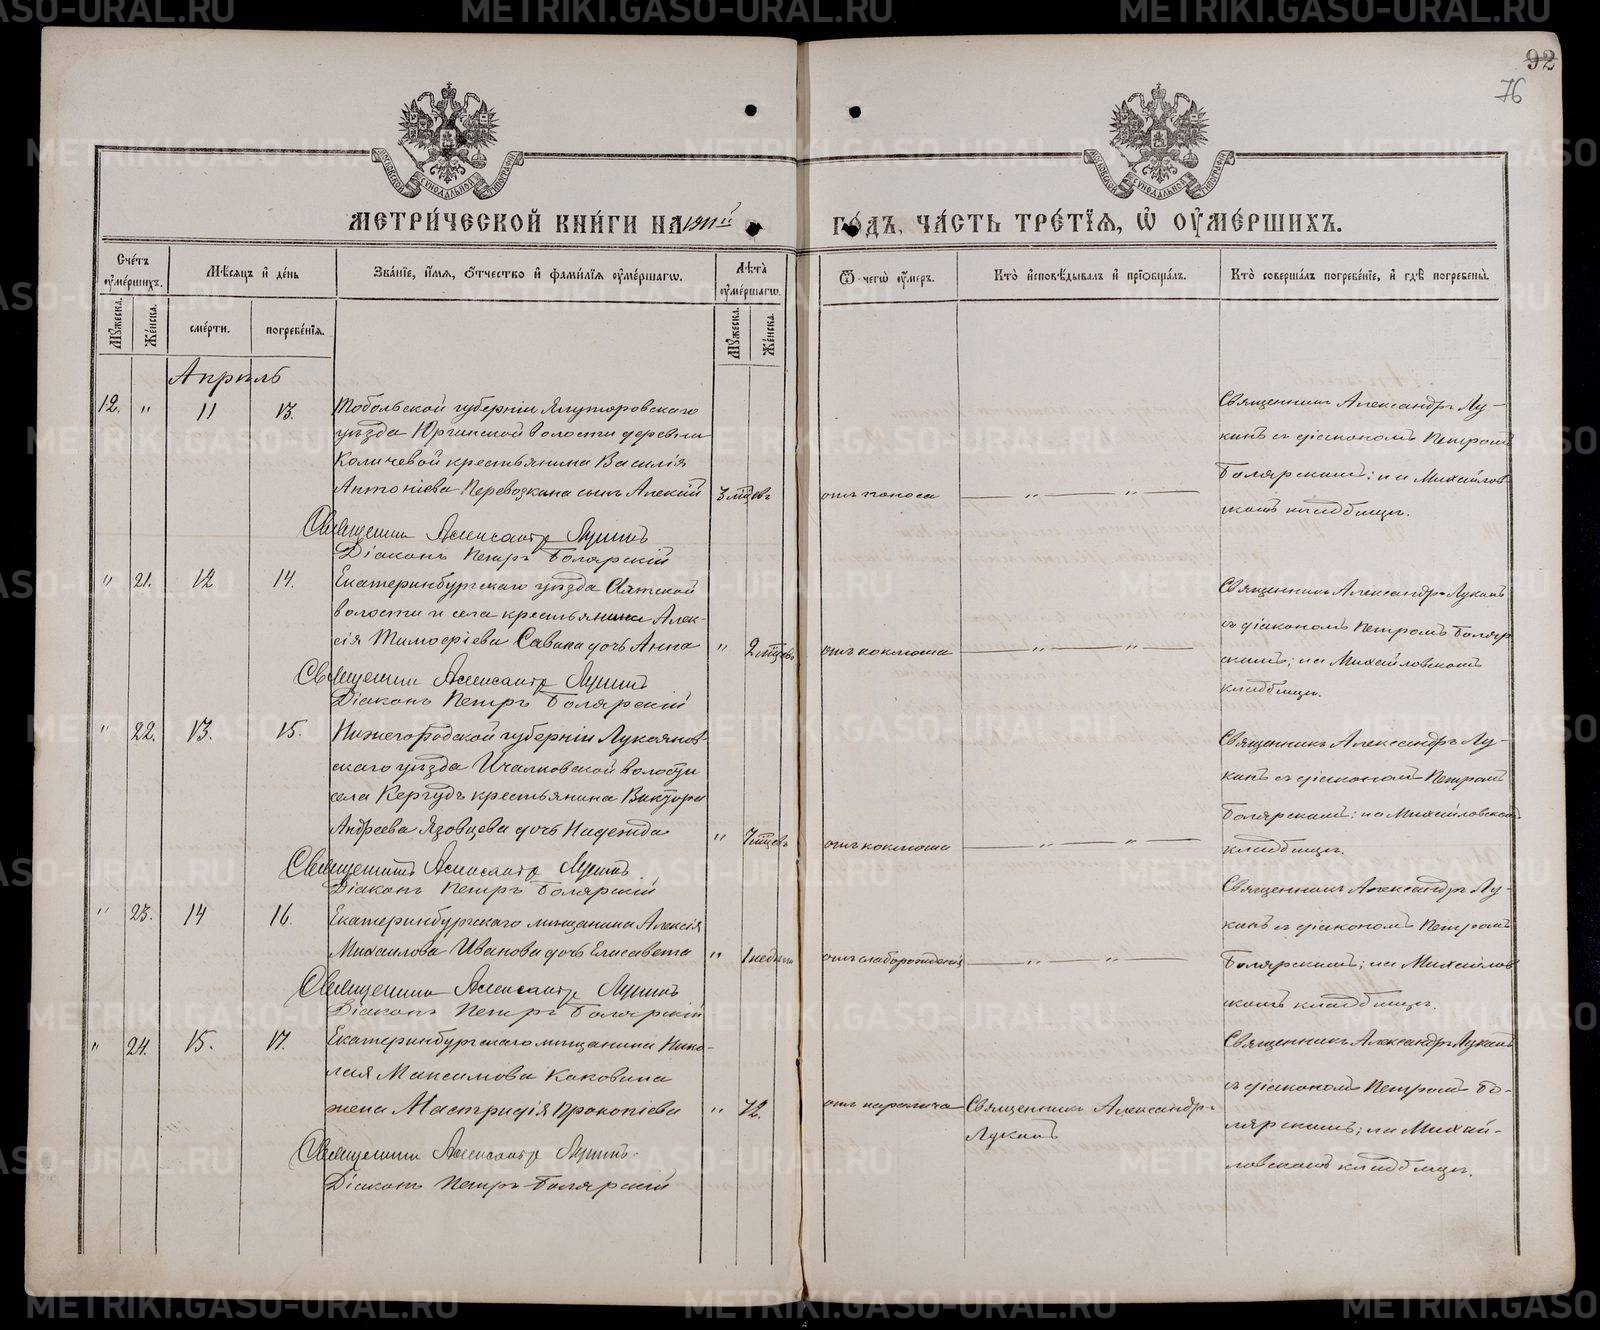 92
76
МОСКОВСКОЙ СѴНОДАЛЬНОЙ ТИПОГРАФІИ
МОСКОВСКОЙ СѴНОДАЛЬНОЙ ТИПОГРАФІИ
МЕТРИ́ЧЕСКОЙ КНИ́ГИ НА 1911й
ГО́ДЪ, ЧА́СТЬ ТРЕ́ТЇЯ, Ѿ ОУМЕ́РШИХЪ.
Счетъ оумершихъ.
Мѣсяцъ и день
Званїе, имя, отчество и фамилїя оумершагѡ.
Лѣта оумершагѡ.
Ѿ чегѡ оумеръ.
Кто исповѣдывалъ и прїобщалъ.
Кто совершалъ погребенїе, и гдѣ погребены.
Мужеска.
Женска.
смерти.
погребенїя.
Мужеска.
Женска.
Апрѣль
12. " 11 13.
Тобольской губерніи Ялуторовскаго
уѣзда Юргинской волости деревни
Количевой крестьянина Василія
Антоніева Перевозкина сынъ Алексій
3 мѣсцевъ
отъ поноса
Священникъ Александръ Лу-
кинъ съ діакономъ Петромъ
Болярскимъ; на Михайлов
скомъ кладбищѣ.
Священникъ Александръ Лукинъ
Діаконъ Петръ Болярскій
" 21. 12 14.
Екатеринбургскаго уѣзда Аятской
волости и села крестьянина Алек-
сія Тимоѳіева Савина дочь Анна
" 2 мѣсцевъ
отъ коклюша
Священникъ Александръ Лукинъ
съ діакономъ Петромъ Боляр
скимъ; на Михайловскомъ
кладбищѣ.
Священникъ Александръ Лукинъ
Діаконъ Петръ Болярскій
" 22. 13. 15.
Нижегородской губерніи Лукоянов-
скаго уѣзда Ичалковской волости
села Кергудъ крестьянина Виктора
Андреева Язовцева дочь Надежда
" 7 мѣсцевъ
отъ коклюша
Священникъ Александръ Лу-
кинъ съ діакономъ Петромъ
Болярскимъ; на Михайловскомъ
кладбищѣ.
Священникъ Александръ Лукинъ
Діаконъ Петръ Болярскій
" 23. 14 16.
Екатеринбургскаго мѣщанина Алексія
Михаилова Иванова дочь Елисавета
" 1 недѣли
отъ слаборожденія
Священникъ Александръ Лу-
кинъ съ діакономъ Петромъ
Болярскимъ; на Михайлов
скомъ кладбищѣ.
Священникъ Александръ Лукинъ
Діаконъ Петръ Болярскій
" 24. 15. 17.
Екатеринбургскаго мѣщанина Нико-
лая Максимова Каковина
жена Мастридія Прокопіева
" 72.
отъ паралича
Священникъ Александръ
Лукинъ
Священникъ Александръ Лукинъ
съ діакономъ Петромъ Бо-
лярскимъ; на Михай-
ловскомъ кладбищѣ.
Священникъ Александръ Лукинъ
Діаконъ Петръ Болярскій
METRIKI.GASO-URAL.RU